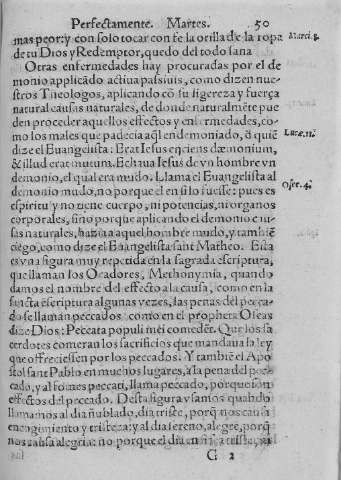 Perfectamente. Martes. 50
mas peor: y con solo tocar con fe la orilla de la ropa
de tu Dios y Redemptor, quedo del todo sana
Marci 5.
Otras enfermedades hay procuradas por el de
monio applicādo actiua passiuis, como dizen nue-
stros Theologos, aplicando cō su ligereza y fuerça
natural causas naturales, de donde naturalmēte pue
den proceder aquellos effectos y enfermedades, co-
mo los males que padecia aql endemoniado, d quiē
Lucæ. 11.
dize el Euangelista: Erat Iesus eijciens dæmonium,
& illud erat mutum. Echaua Iesus de vn hombre vn
demonio, el qual era mudo. Llama el Euangelista al
demonio mudo, no porque el en si lo fuesse: pues es
Osee. 4.
espiritu y no tiene cuerpo, ni potencias, ni organos
corporales, sino porque aplicando el demonio cau-
sas naturales, hazia a aquel hombre mudo, y tambiē
ciego, como dize el Euangelista sant Matheo. Esta
es vna figura muy repetida en la sagrada escriptura,
que llaman los Oradores, Methonymia, quando
damos el nombre del effecto a la causa, como en la
sancta escriptura algunas vezes, las penas del pecca-
do se llaman peccados como en el propheta Oseas
dize Dios: Peccata populi mei comedēt. Que los sa
cerdotes comeran los sacrificios que mandaua la ley
que offreciessen por los peccados. Y tambiē el Apo
stol sant Pablo en muchos lugares, a la pena del pec-
cado, y al fomes peccati, llama peccado, porque son
effectos del peccado. Desta figura vsamos quando
llamamos al dia ñublado, dia triste, porq̄ nos causa
encogimiento y tristeza: y al dia sereno, alegre, porq̄
nos causa alegria: no porque el dia en si sea triste, ni
G 2